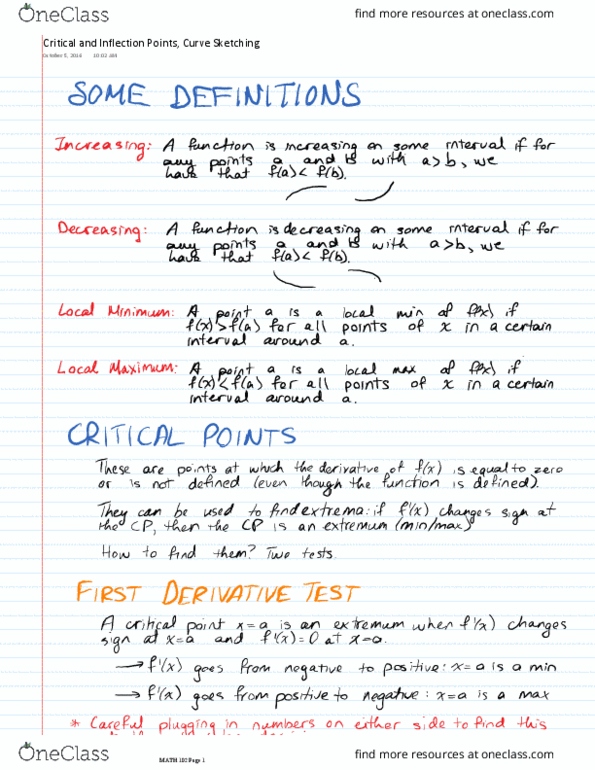 OneClass
find more resources at oneclass.com
Critical and Inflection Points, Curve Sketching
October 5, 2016 10:02 AM
SOME DEFINITIONS
Increasing: A function is increasing on some interval if for
any points a and b with a>b, we
have that f(a)<f(b).
Decreasing: A function is decreasing on some interval if for
any points a and b with a>b, we
have that f(a)<f(b).
Local Minimum: A point a is a local min of f(x) if
f(x)>f(a) for all points of x in a certain
interval around a.
Local Maximum: A point a is a local max of f(x) if
f(x)<f(a) for all points of x in a certain
interval around a.
CRITICAL POINTS
These are points at which the derivative of f(x) is equal to zero
or is not defined (even though the function is defined).
They can be used to find extrema: if f'(x) changes sign at
the CP, then the CP is an extremum (min/max)
How to find them? Two tests.
FIRST DERIVATIVE TEST
A critical point x=a is an extremum when f'(x) changes
sign at x=a and f'(x)=0 at x=a.
→ f'(x) goes from negative to positive: x=a is a min
→ f'(x) goes from positive to negative: x=a is a max
* Careful plugging in numbers on either side to find this
OneClass
MATH 100 Page 1
find more resources at oneclass.com